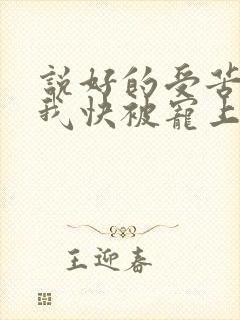 說好的受苦
我快被寵上
王迎春